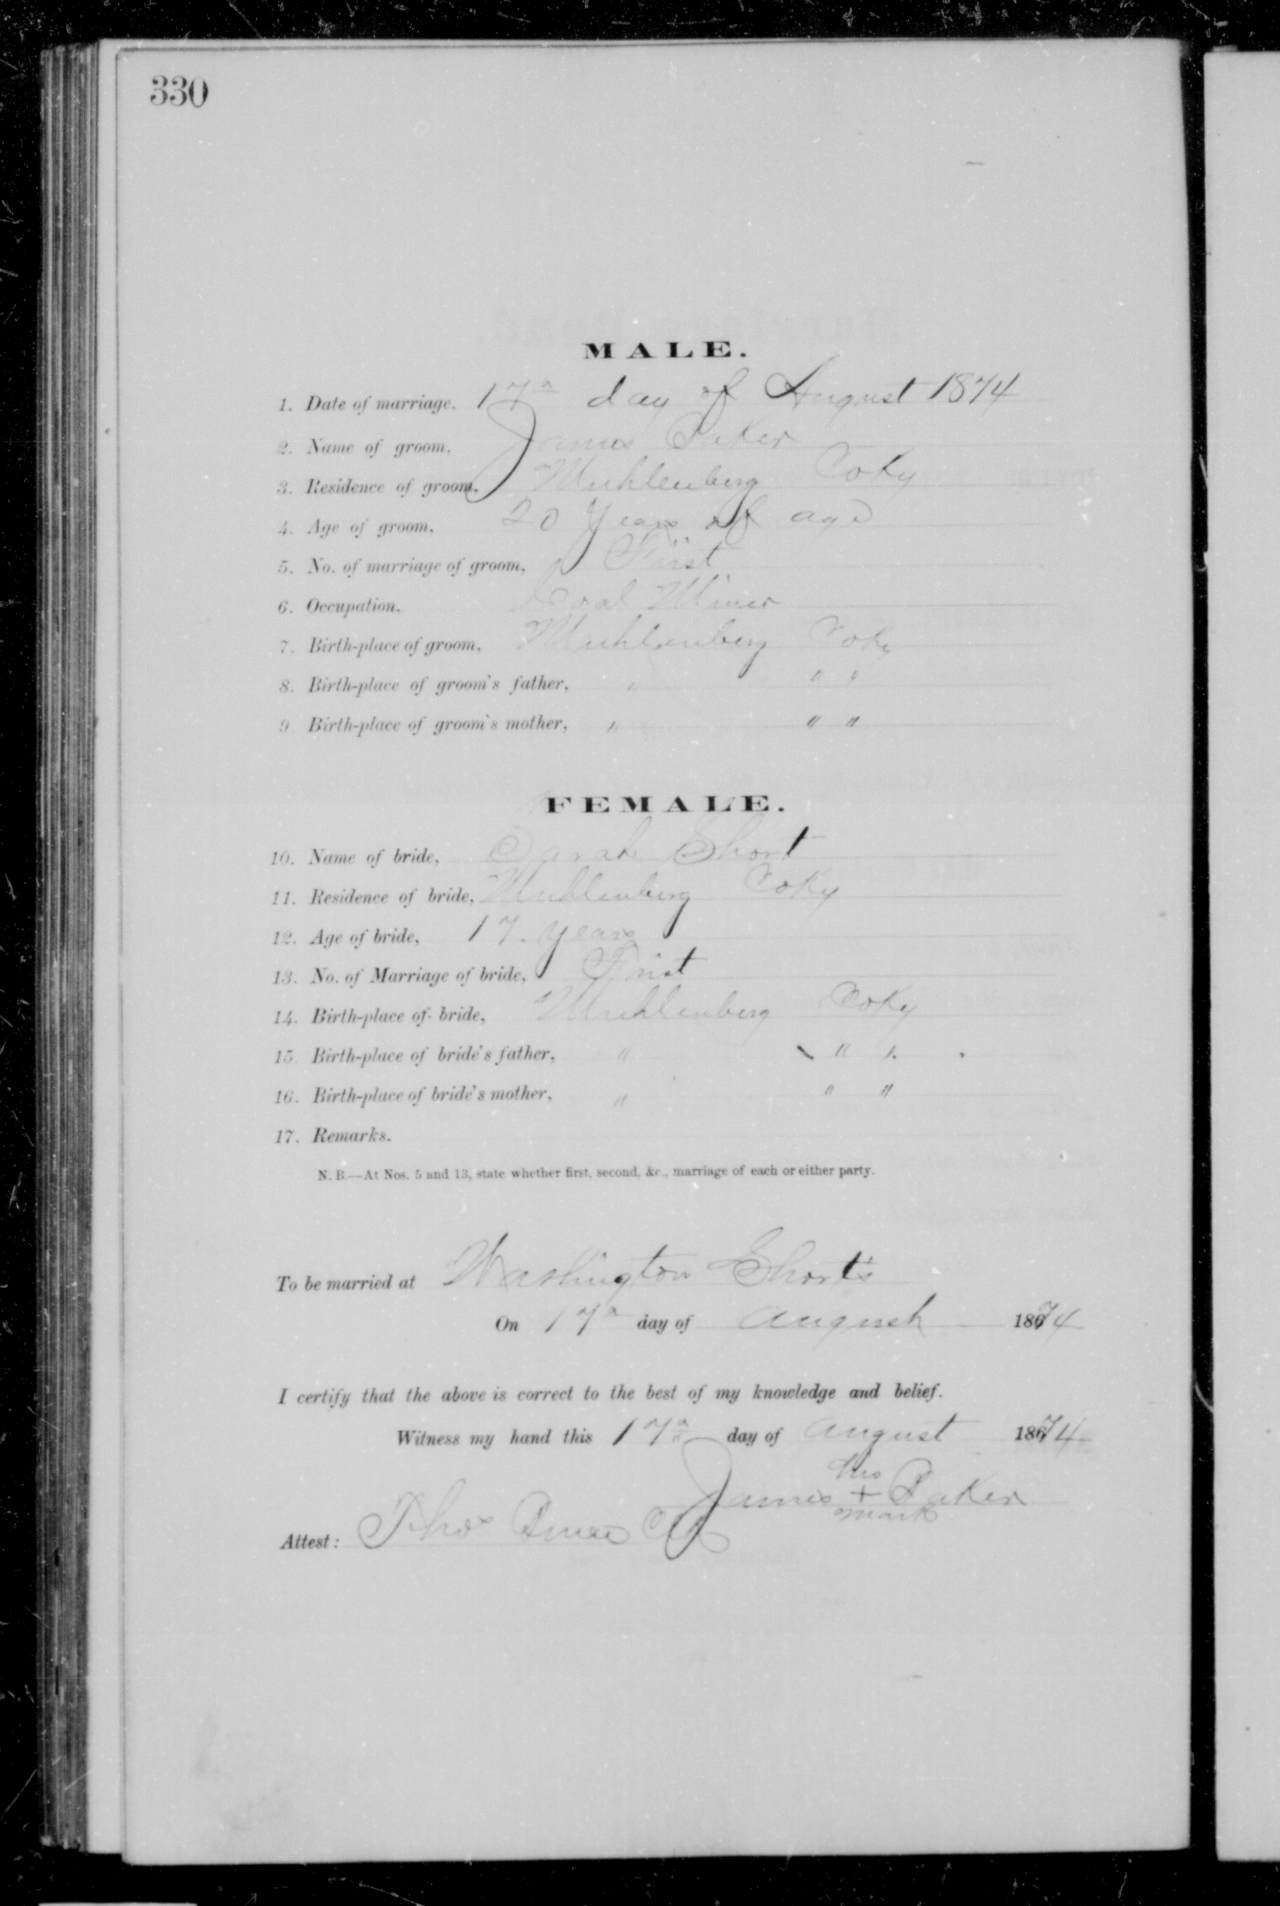 330
MALE.
1. Date of marriage, 17th day of August 1874
2. Name of groom, James Baker
3. Residence of groom, Muhlenberg Co Ky
4. Age of groom, 20 Years of age
5. No. of marriage of groom, First
6. Occupation, Coal Miner
7. Birth-place of groom, Muhlenberg Co Ky
8. Birth-place of groom's father, " " "
9 Birth-place of groom's mother, " " "
FEMALE.
10. Name of bride, Sarah Short
11. Residence of bride, Muhlenberg Co Ky
12. Age of bride, 17. years
13. No. of Marriage of bride, First
14. Birth-place of bride, Muhlenberg Co Ky
15. Birth-place of bride's father, " " "
16. Birth-place of bride's mother, " " "
17. Remarks.
N. B.—At Nos. 5 and 13, state whether first, second, &c., marriage of each or either party.
To be married at Washington Short's
On 17th day of August 1874
I certify that the above is correct to the best of my knowledge and belief.
Witness my hand this 17th day of August 1874
his
James + Baker
mark
Attest: Thos